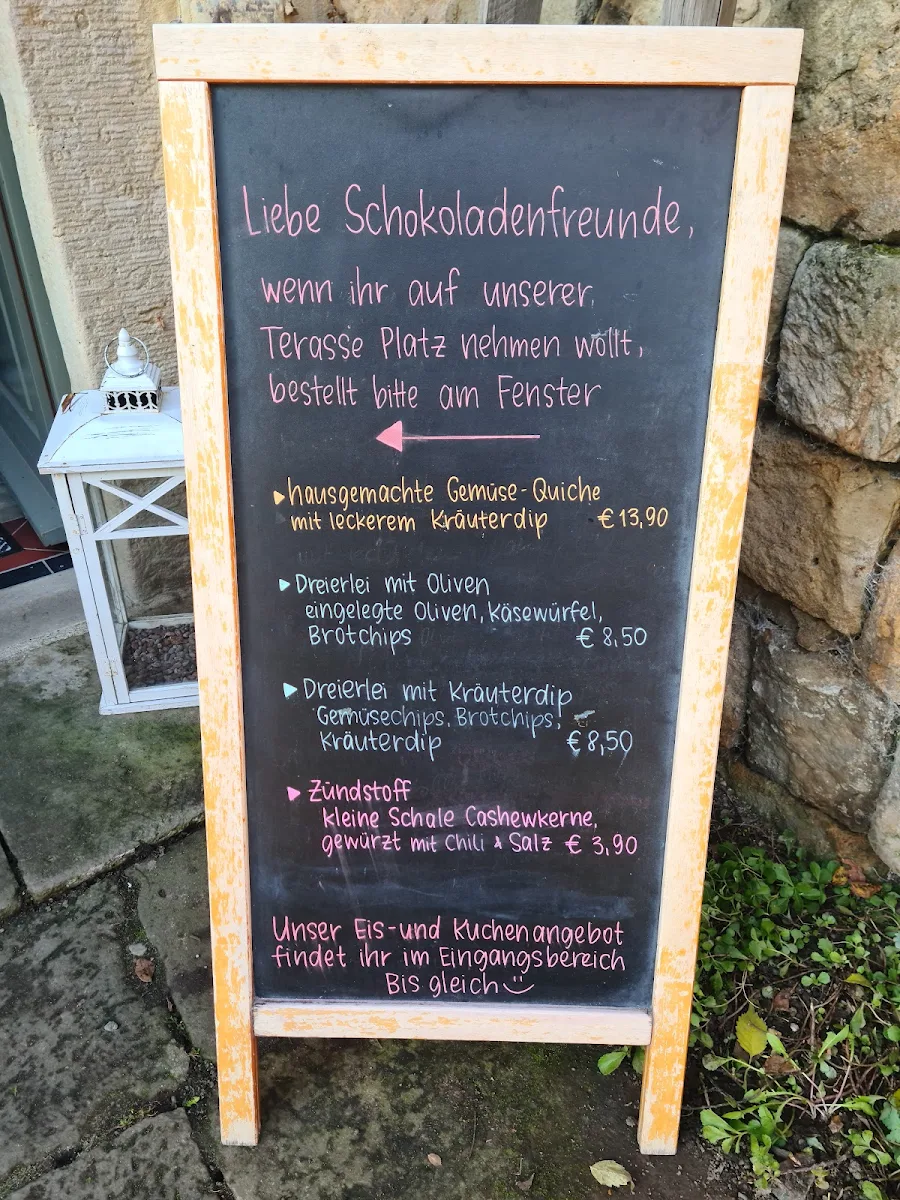 Liebe Schokoladenfreunde,
wenn ihr auf unserer
Terasse Platz nehmen wollt,
bestellt bitte am Fenster
hausgemachte Gemüse-Quiche
mit leckerem Kräuterdip € 13,90
Dreierlei mit Oliven
eingelegte Oliven, Käsewürfel,
Brotchips € 8,50
Dreierlei mit Kräuterdip
Gemüsechips, Brotchips,
Kräuterdip € 8,50
Zündstoff
kleine Schale Cashewkerne,
gewürzt mit Chili & Salz € 3,90
Unser Eis- und Kuchenangebot
findet ihr im Eingangsbereich
Bis gleich